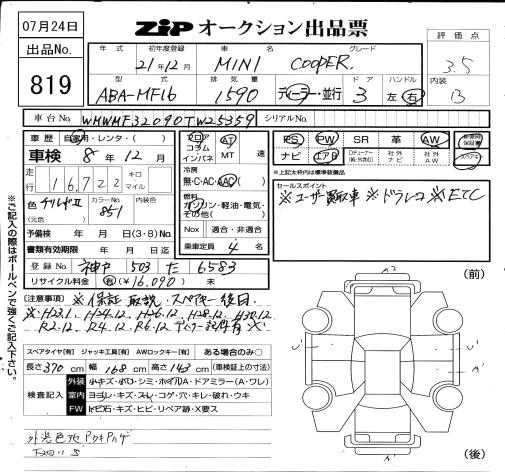 07月24日
出品No.
819
ZIP オークション出品票
評価点
3.5
内装
B
年式 初年度登録 車名 グレード
21年12月 MINI COOPER.
型式 排気量 ドア ハンドル
ABA-MF16 1590 ディーラー・並行 3 左・右
車台No. WMWMF32090TW25359 シリアルNo.
車歴 自家用・レンタ・( )
車検 8年12月
走行 16722 キロ マイル
色 (元色) チリレッドⅡ カラーNo. 851 内装色
予備検 年 月 日(3・8)No.
書類有効期限 年 月 日迄
登録No. 神戸 503 た 6583
リサイクル料金 有(¥16,090) 未
フロア コラム インパネ AT MT 速
冷房
無・C・AC・AAC
燃料
ガソリン・軽油・電気・その他( )
Nox 適合・非適合
乗車定員 4名
PS PW SR 革 AW 新車時保証書
ナビ エアB Dチューナー(純・外含む) 社外ナビ 社外AW スペアキー
※上記太枠内は標準装備品
セールスポイント
※ユーザー買取車 ※ドラレコ ※ETC
(注意事項) ※保証 取説 スペアキー後日
※H23.1 H24.12 H26.12 H28.12 H30.12
R2.12 R4.12 R6.12 ディーラー記録有
スペアタイヤ[有] ジャッキ工具[有] AWロックキー[有] ある場合のみ○
長さ370cm 幅168cm 高さ143cm (車検証上の寸法)
検査記入
外装 小キズ・小ワレ・シミ・ホイルA・ドアミラー(A・ワレ)
室内 ヨゴレ・キズ・スレ・コゲ・穴・キレ・破れ・ウキ
FW ヒビ石・キズ・ヒビ・リペア跡・X要ス
外装色地
A2
(前)
(後)
※ご記入の際はボールペンで強くご記入下さい。